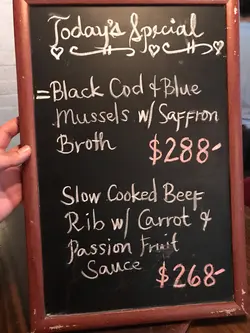 Today's Special
=Black Cod & Blue
Mussels w/ Saffron
Broth $288-
Slow Cooked Beef
Rib w/ Carrot &
Passion Fruit
Sauce $268-